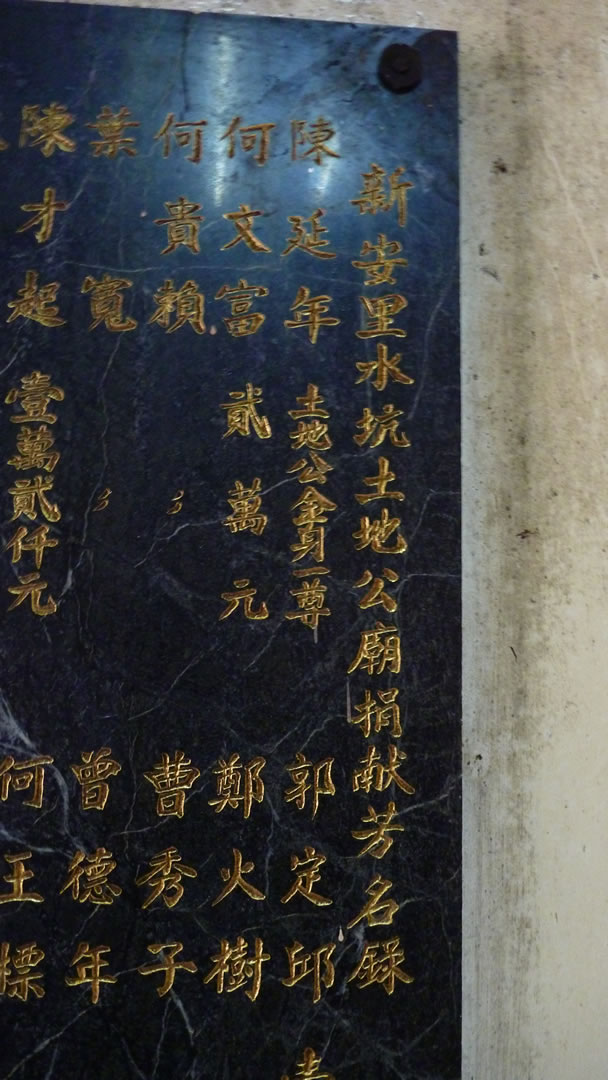 新安里水坑土地公廟捐献芳名録
陳延年 土地公金身一尊
郭定邱
何文富 貳萬元
鄭火樹
何貴賴 〃
曹秀子
葉寬 〃
曾德年
陳才起 壹萬貳仟元
何王標